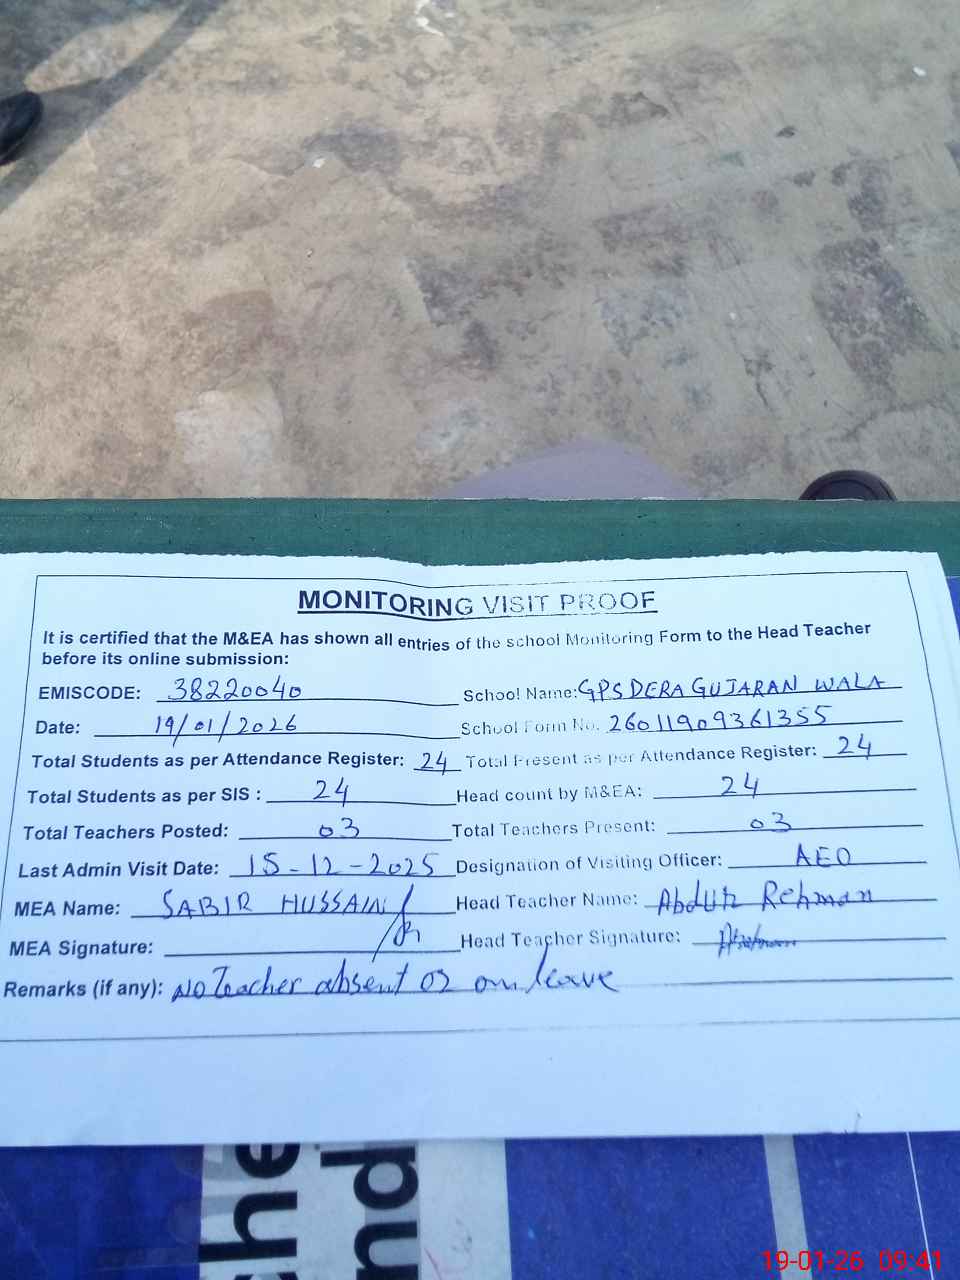 MONITORING VISIT PROOF
It is certified that the M&EA has shown all entries of the school Monitoring Form to the Head Teacher
before its online submission:
EMISCODE: 38220040 School Name: GPS DERA GUJARAN WALA
Date: 19/01/2026 School Form No. 26011909361355
Total Students as per Attendance Register: 24 Total Present as per Attendance Register: 24
Total Students as per SIS : 24 Head count by M&EA: 24
Total Teachers Posted: 03 Total Teachers Present: 03
Last Admin Visit Date: 15-12-2025 Designation of Visiting Officer: AEO
MEA Name: SABIR HUSSAIN Head Teacher Name: Abdur Rehman
MEA Signature: Head Teacher Signature:
Remarks (if any): No Teacher absent or on leave
he
nd
19-01-26 09:41